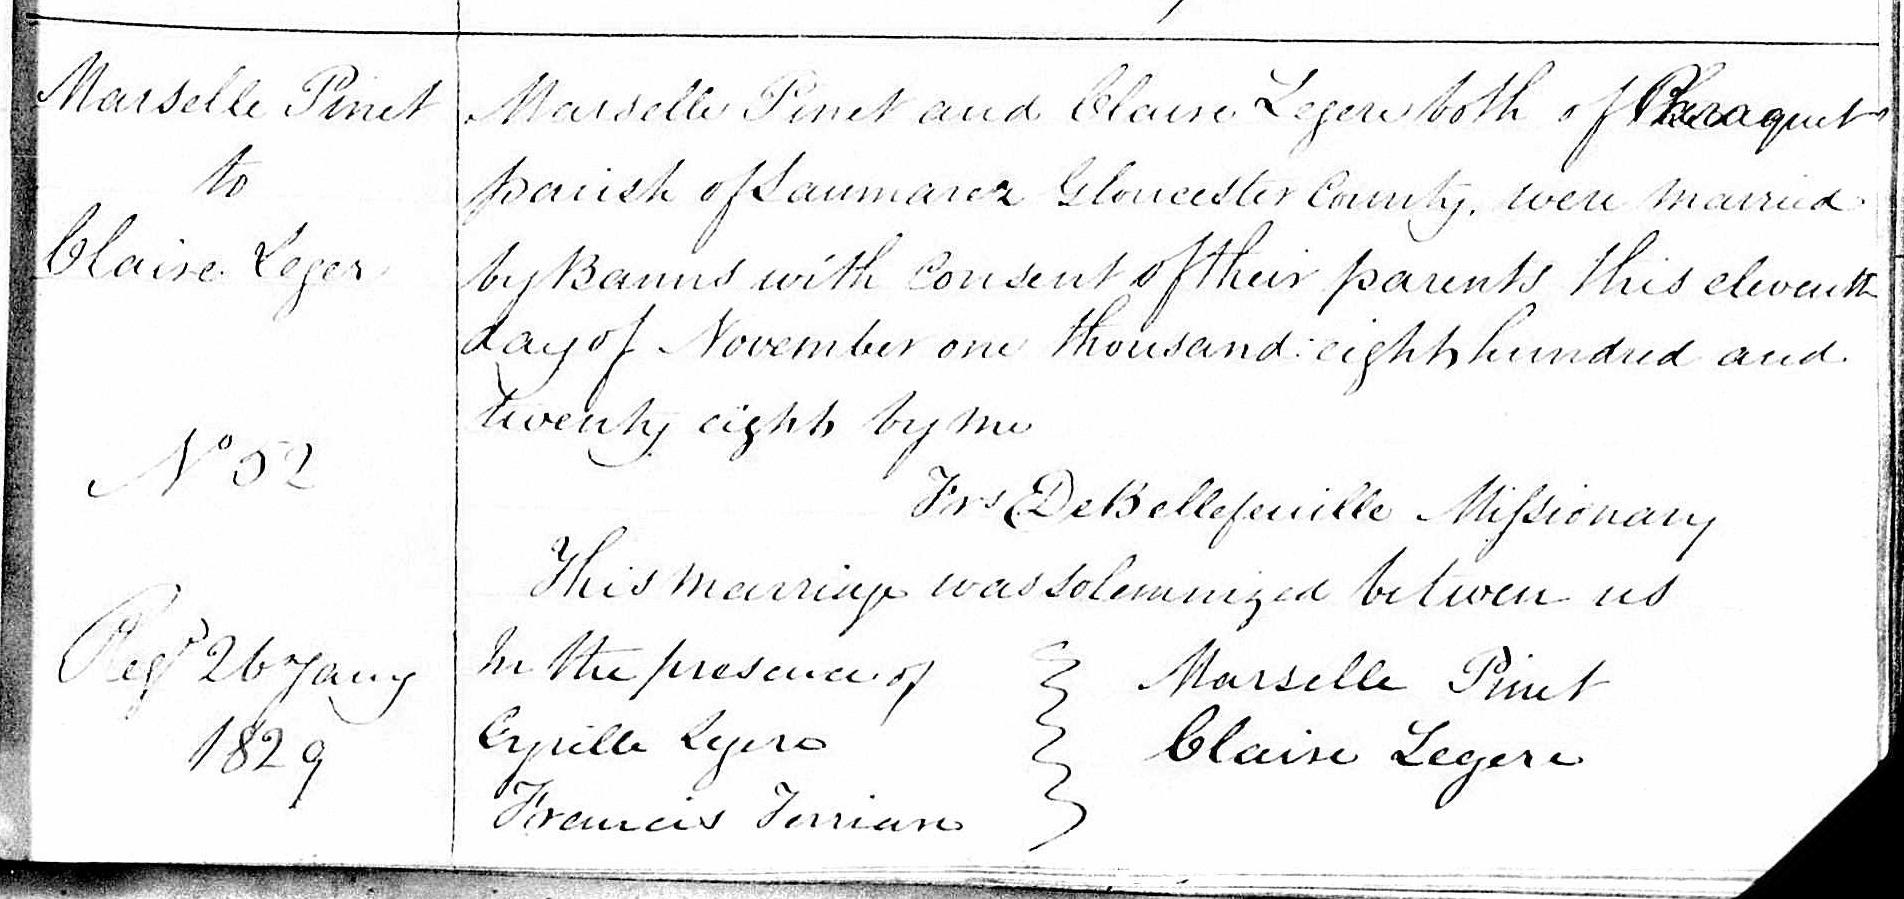 Marselle Pinet
to
Claire Leger
No 52
Regd 26 Jany
1829
Marselle Pinet and Claire Legere both of Caraquet
parish of Saumarez Gloucester County, were married
by Banns with Consent of their parents this eleventh
day of November one thousand eight hundred and
twenty eight by me
Frs DeBellefeuille Missionary
This marriage was solemnized between us
In the presence of
Cyrille Legere
Francis Terrian
Marselle Pinet
Claire Legere